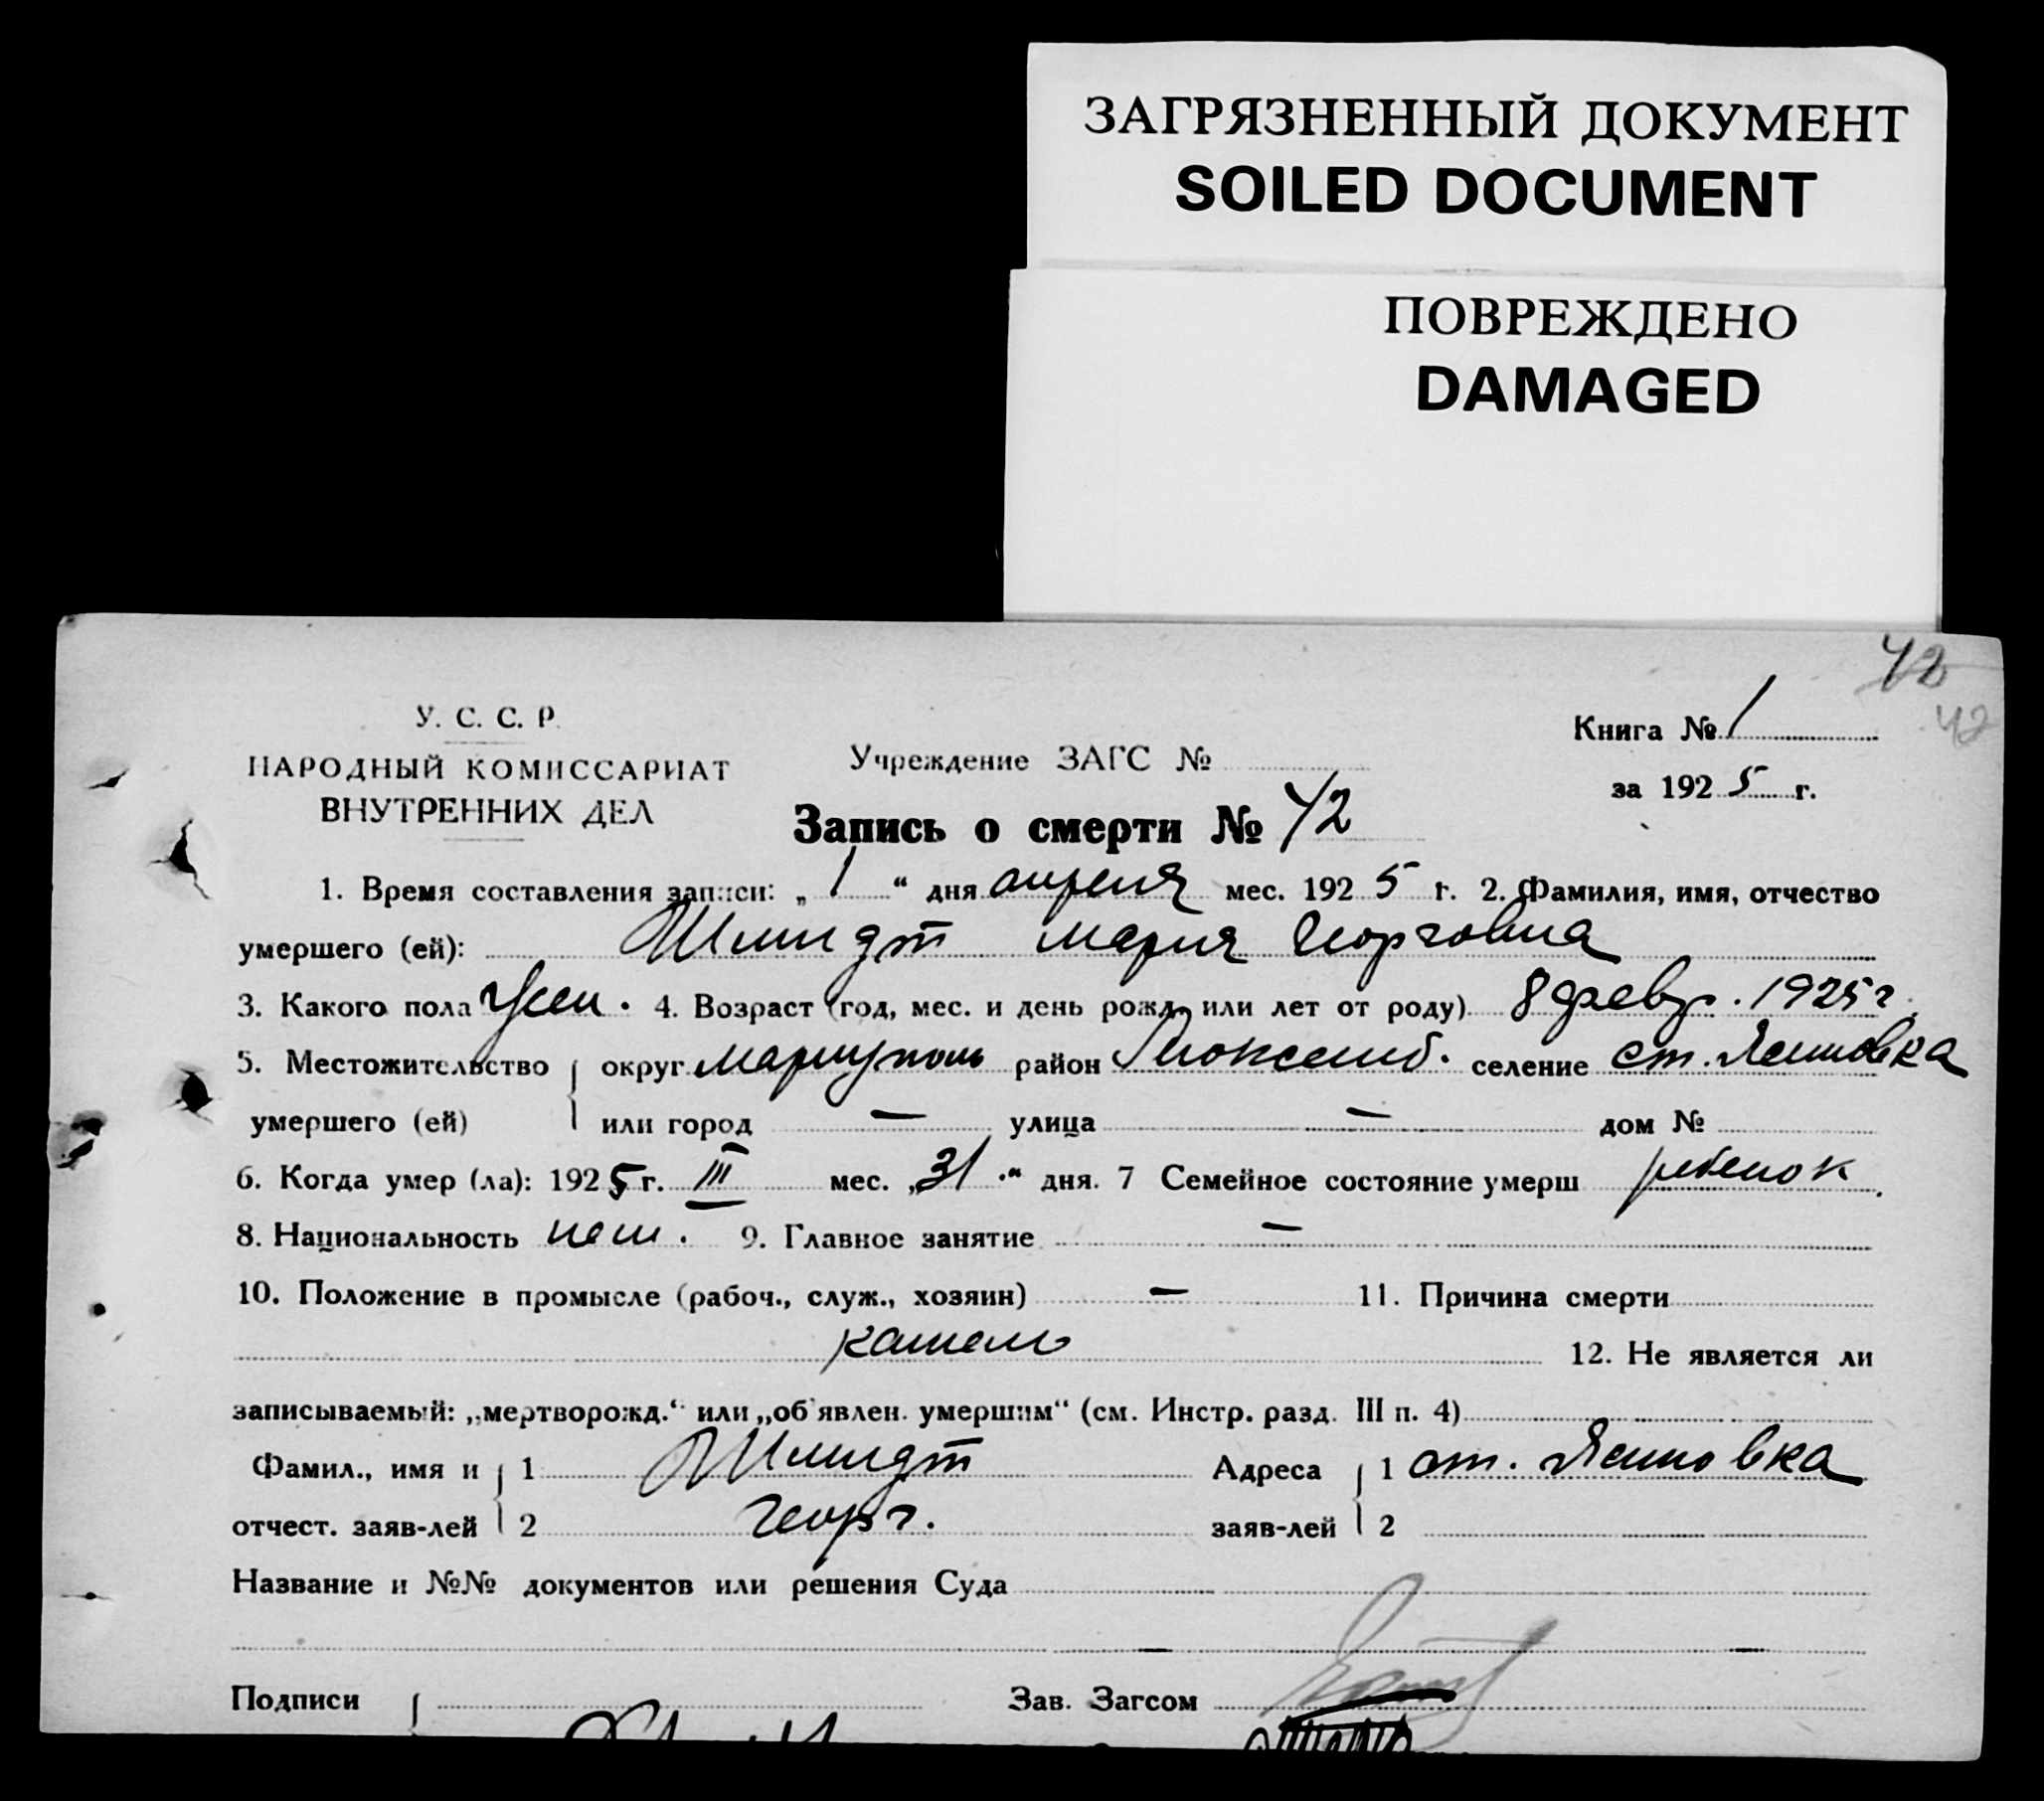 ЗАГРЯЗНЕННЫЙ ДОКУМЕНТ
SOILED DOCUMENT
ПОВРЕЖДЕНО
DAMAGED
42
42
У. С. С. Р.
НАРОДНЫЙ КОМИССАРИАТ
ВНУТРЕННИХ ДЕЛ
Учреждение ЗАГС №
Книга № 1
за 1925 г.
Запись о смерти № 42
1. Время составления записи: „ 1 “ дня апреля мес. 1925 г. 2. Фамилия, имя, отчество
умершего (ей): Шмидт Мария Георговна
3. Какого пола жен. 4. Возраст (год, мес. и день рожд. или лет от роду) 8 февр. 1925 г.
5. Местожительство округ Мариуполь район селение ст. Ясиновка
умершего (ей) или город — улица — дом №
6. Когда умер (ла): 1925 г. III мес. „31“ дня. 7 Семейное состояние умерш ребенок
8. Национальность нем. 9. Главное занятие —
10. Положение в промысле (рабоч., служ., хозяин) — 11. Причина смерти
кашель 12. Не является ли
записываемый: „мертворожд.“ или „об'явлен. умершим“ (см. Инстр. разд. III п. 4)
Фамил., имя и 1 Шмидт Адреса 1 ст. Ясиновка
отчест. заяв-лей 2 Георг. заяв-лей 2
Название и №№ документов или решения Суда
Подписи Зав. Загсом